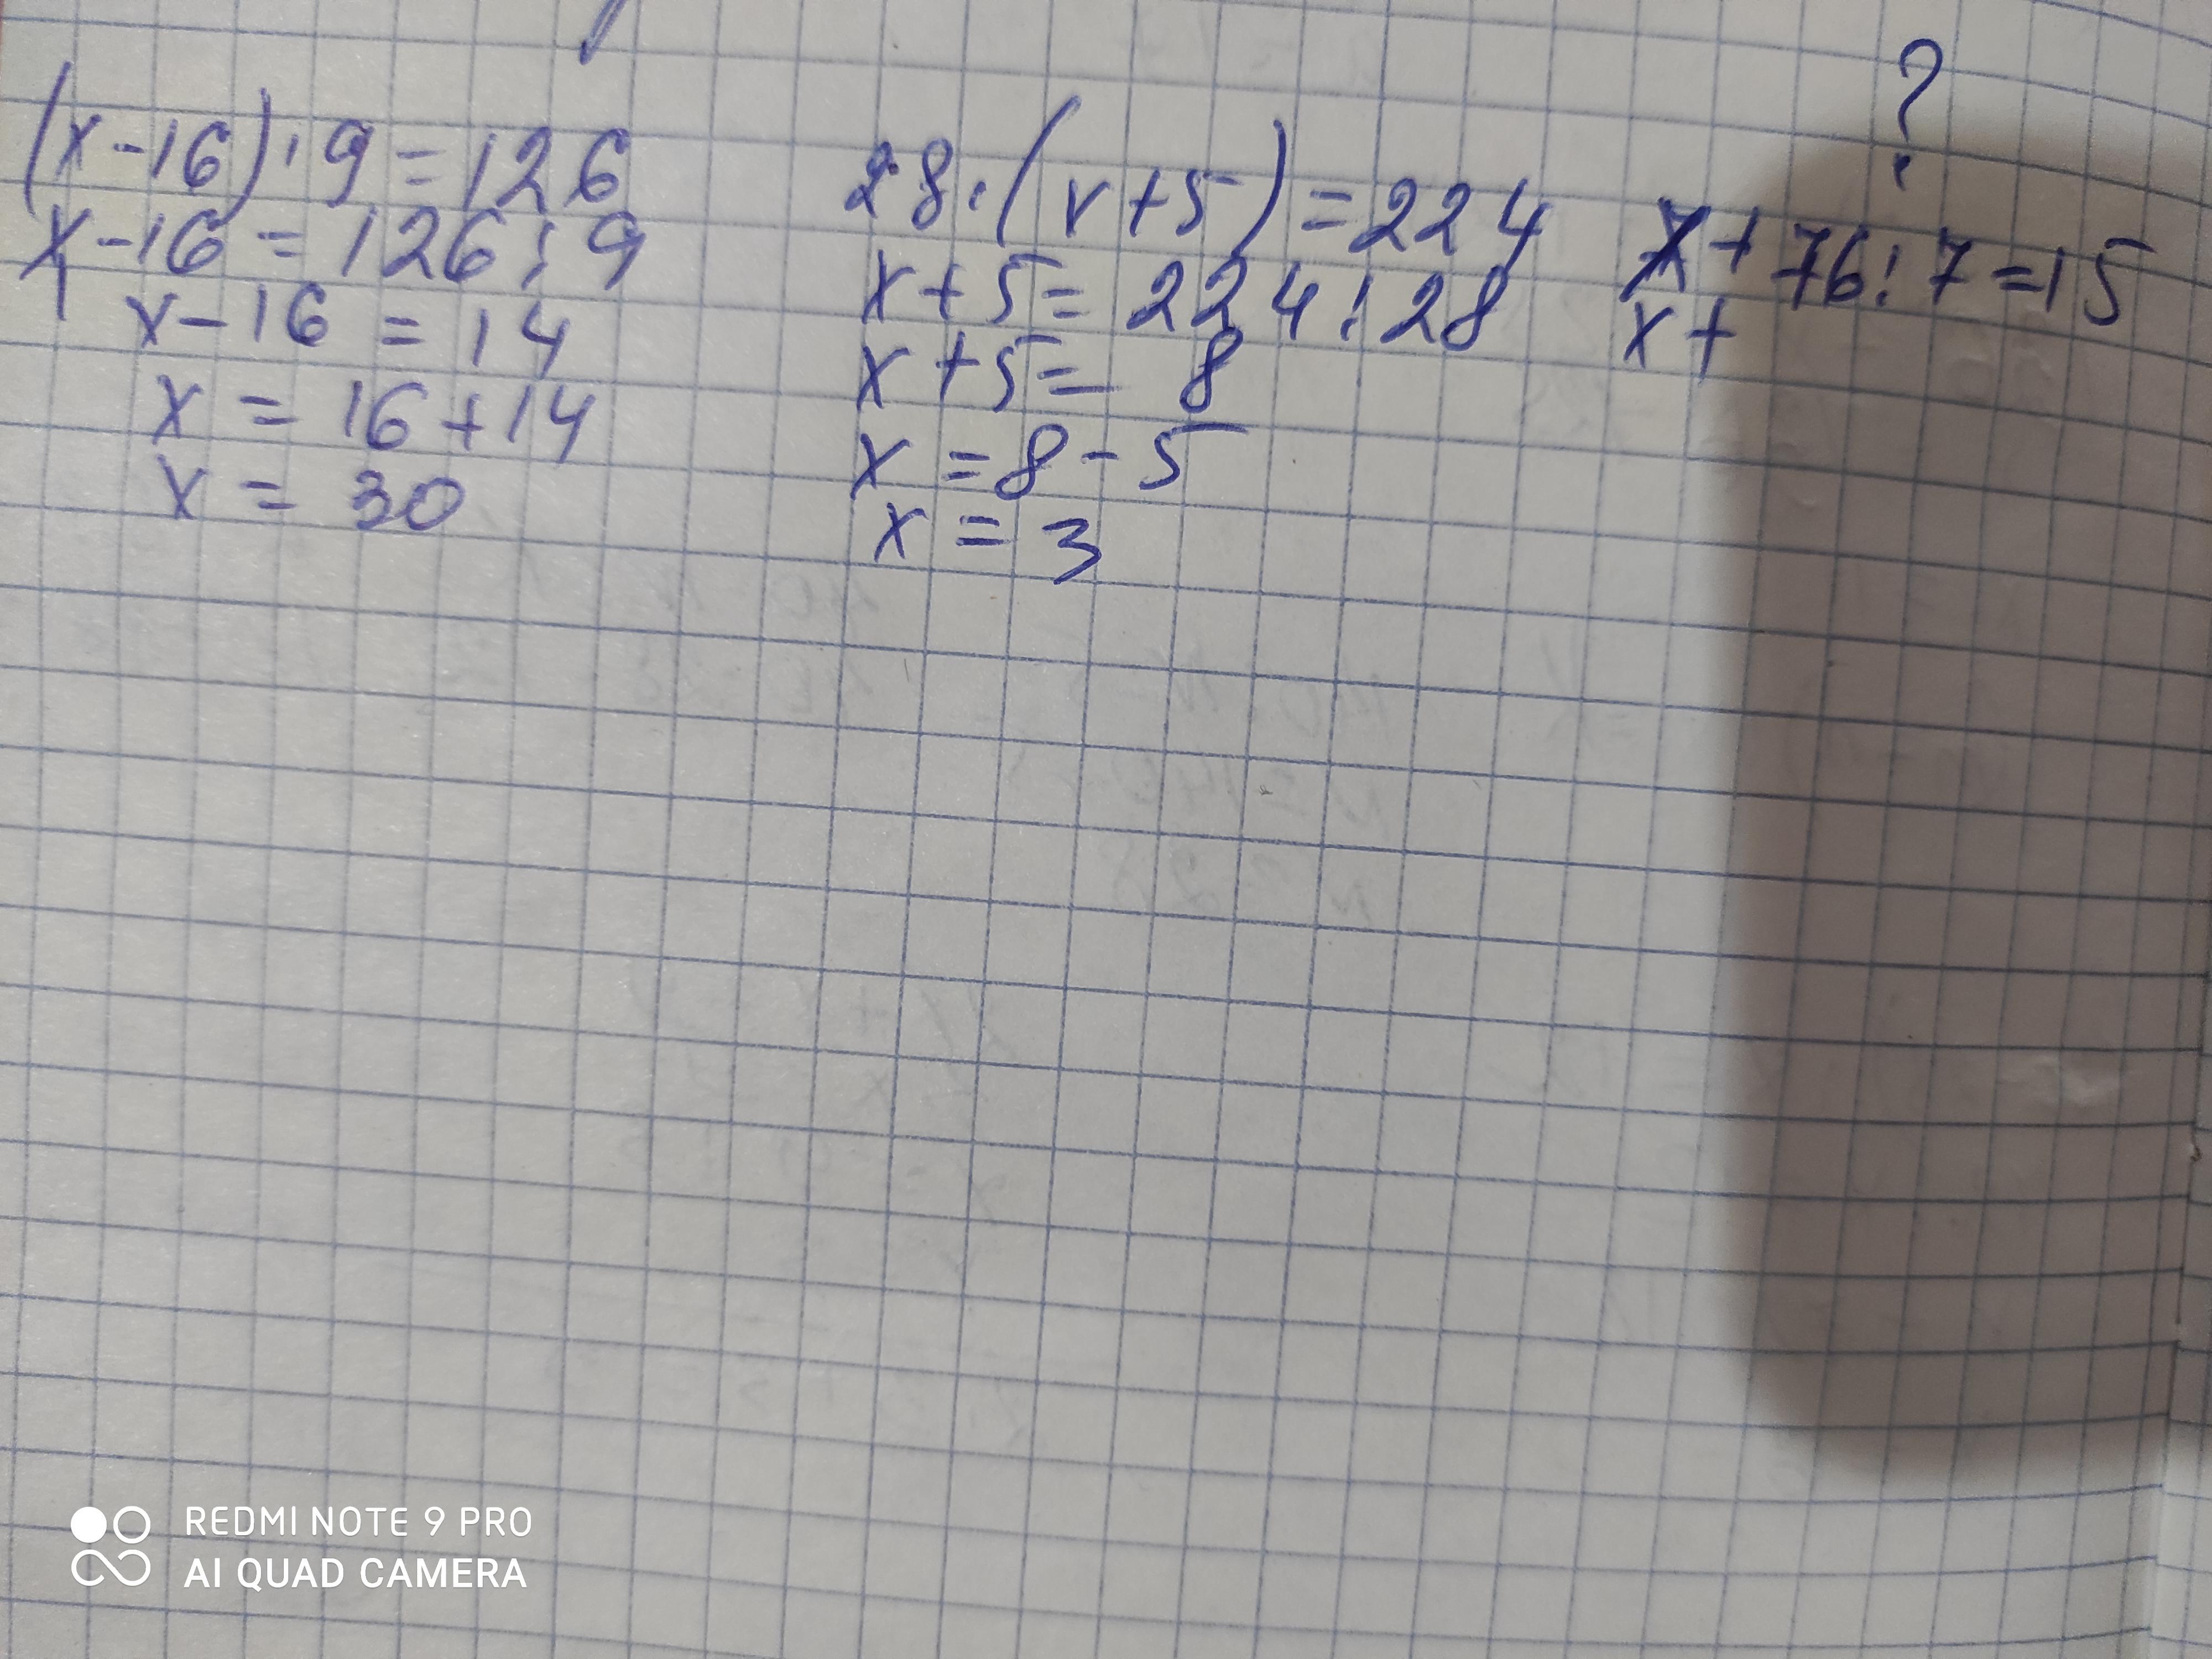 (x-16)·9=126
x-16=126:9
x-16=14
x=16+14
x=30
28·(x+5)=224
x+5=224:28
x+5=8
x=8-5
x=3
?
x+76:7=15
x+
REDMI NOTE 9 PRO
AI QUAD CAMERA